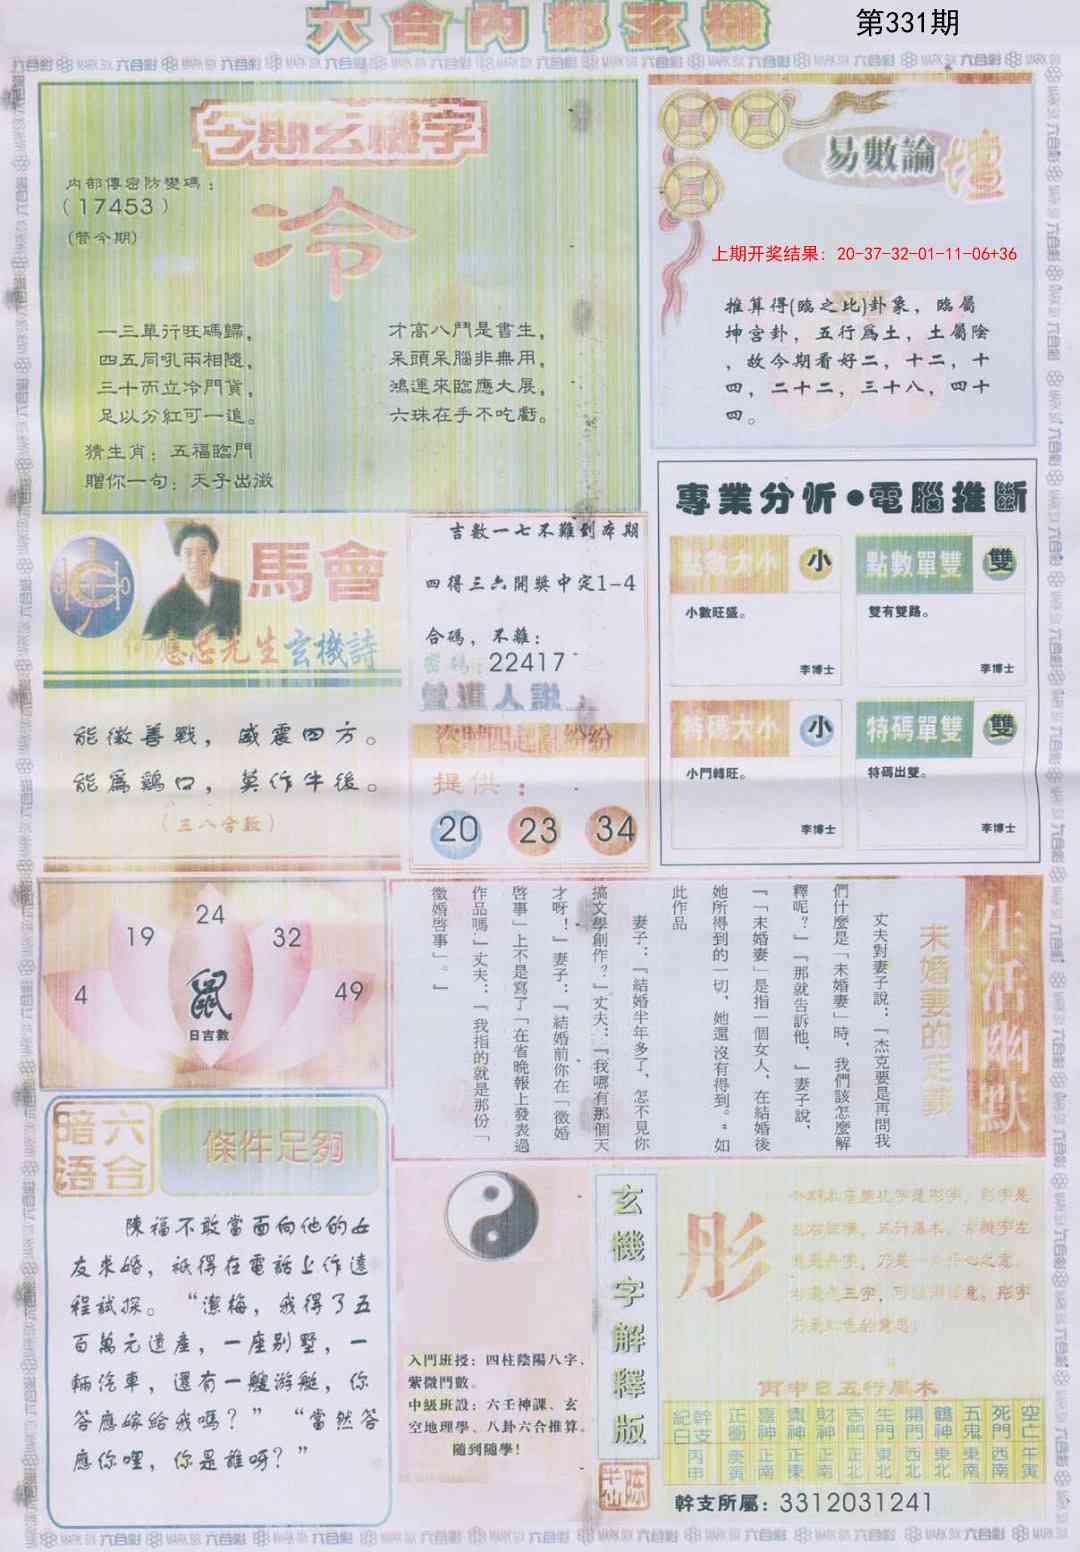 六合內部玄機
第331期
今期玄機字
內部傳密防變碼：
（17453）
(管今期)
冷
一三單行旺碼歸，
四五同吼兩相隨，
三十而立冷門貨，
足以分紅可一追。
才高八鬥是書生，
呆頭呆腦非無用，
鴻運來臨應大展，
六珠在手不吃虧。
猜生肖：五福臨門
贈你一句：天子出遊
易數論壇
上期开奖结果：20-37-32-01-11-06+36
推算得(臨之比)卦象，臨屬
坤宮卦，五行爲土，土屬陰
，故今期看好二，十二，十
四，二十二，三十八，四十
四。
專業分析●電腦推斷
點數大小 小
小數旺盛。
李博士
點數單雙 雙
雙有雙路。
李博士
特碼大小 小
小門轉旺。
李博士
特碼單雙 雙
特碼出雙。
李博士
馬會
先生玄機詩
能徵善戰，威震四方。
能爲鷄口，莫作牛後。
（三八合數）
吉數一七不難到本期
四得三六開獎中定1-4
合碼，不離：
密碼：22417
曾道人説
盜賊四起亂紛紛
提供：
20 23 34
4
19
24
32
49
鼠
日吉數
生活幽默
未婚妻的定義
丈夫對妻子說：『杰克要是再問我
們什麽是「未婚妻」時，我們該怎麽解
釋呢？』『那就告訴他，』妻子說，
『「未婚妻」是指一個女人，在結婚後
她所得到的一切，她還沒有得到。“如
此作品
妻子：『結婚半年多了，怎不見你
搞文學創作？』丈夫：『我哪有那個天
才呀！』妻子：『結婚前你在「徵婚
啓事」上不是寫了「在省晚報上發表過
作品嗎」丈夫：『我指的就是那份「
徵婚啓事」。』
六合暗語
條件足夠
陳福不敢當面向他的女
友求婚，祇得在電話上作遠
程試探。“潔梅，我得了五
百萬元遺産，一座别墅，一
輛汽車，還有一艘游艇，你
答應嫁給我嗎？”“當然答
應你哩，你是誰呀？”
入門班授：四柱陰陽八字、
紫微門數。
中級班設：六壬神課、玄
空地理學、八卦六合推算。
隨到隨學！
玄機字解釋版
彤
丙申日五行屬木
幹支紀日 正衝 喜神 貴神 財神 吉門 生門 開門 鶴神 五鬼 死門 空亡
丙申 庚寅 正南 正東 正南 正北 東北 西北 東北 東南 西南 午寅
幹支所屬：3312031241